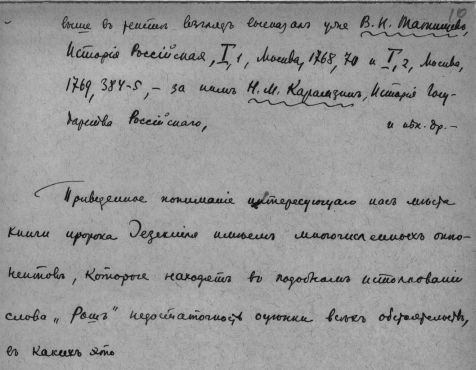 10
выше въ реестръ взглядъ высказалъ уже В. Н. Татищевъ,
Исторія Россійская, I, 1, Москва, 1768, 20 и I, 2, Москва,
1769, 384-5, – за нимъ Н. М. Карамзинъ, Исторія Госу-
дарства Россійскаго, и мн. др. –
Приведенное пониманіе интересующаго насъ мѣста
книги пророка Іезекіиля имѣетъ многочисленныхъ оппо-
нентовъ, которые находятъ въ подобномъ истолкованіи
слова „Рошъ" недостаточность оцѣнки всѣхъ обстоятельствъ,
въ какихъ это